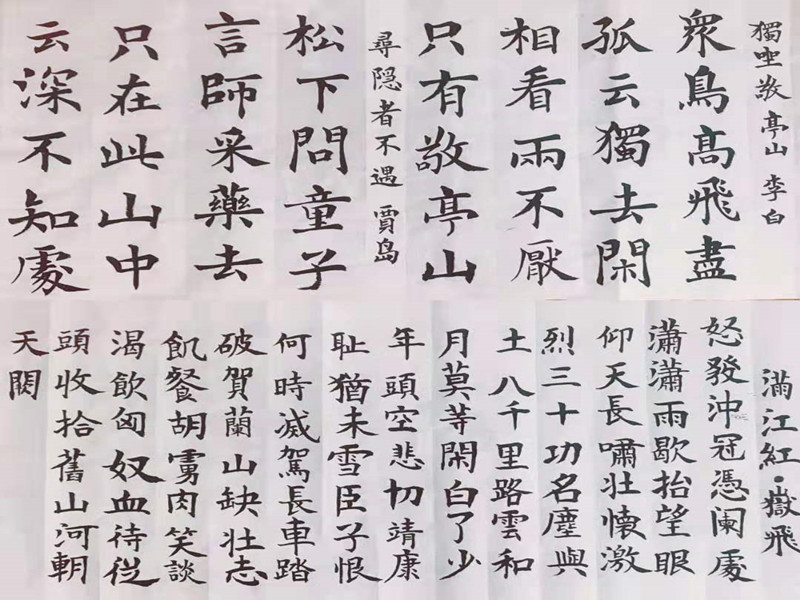 獨坐敬亭山 李白
衆鳥高飛盡
孤云獨去閑
相看兩不厭
只有敬亭山
尋隐者不遇 賈岛
松下問童子
言師采藥去
只在此山中
云深不知處
滿江紅·嶽飛
怒發沖冠憑阑處
瀟瀟雨歇抬望眼
仰天長嘯壯懷激
烈三十功名塵與
土八千里路雲和
月莫等閑白了少
年頭空悲切靖康
耻猶未雪臣子恨
何時滅駕長車踏
破賀蘭山缺壯志
飢餐胡虜肉笑談
渴飲匈奴血待從
頭收拾舊山河朝
天闕